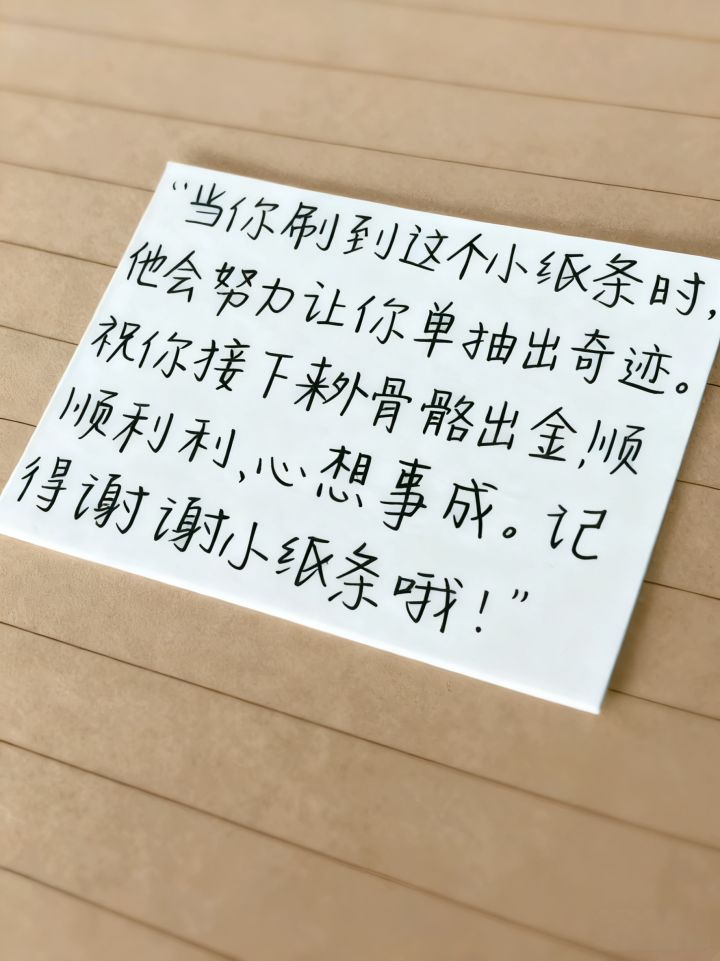 “当你刷到这个小纸条时,
他会努力让你单抽出奇迹。
祝你接下来外骨骼出金,顺
顺利利,心想事成。记
得谢谢小纸条哦!”